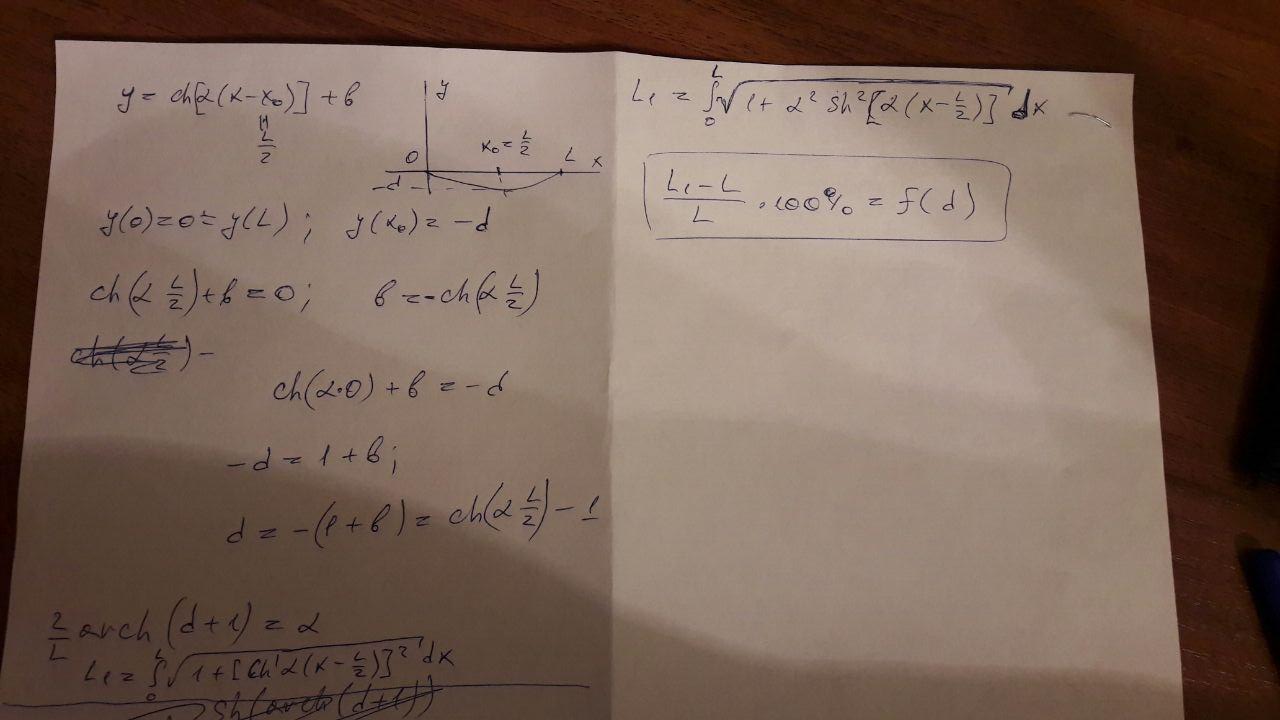 y = ch[α(x-x₀)] + b
L/2
y
0
x₀ = L/2
L
x
-d
y(0)=0=y(L); y(x₀) = -d
ch(α L/2)+b = 0; b = -ch(α L/2)
ch(α·0) + b = -d
-d = 1 + b;
d = -(1+b) = ch(α L/2) - 1
2/L arch(d+1) = α
L₁ = ∫₀ᴸ √(1+[ch' α(x-L/2)]²) dx
sh(arch(d+1))
L₁ = ∫₀ᴸ √(1+α² sh²[α(x-L/2)]) dx
(L₁-L)/L · 100% = f(d)